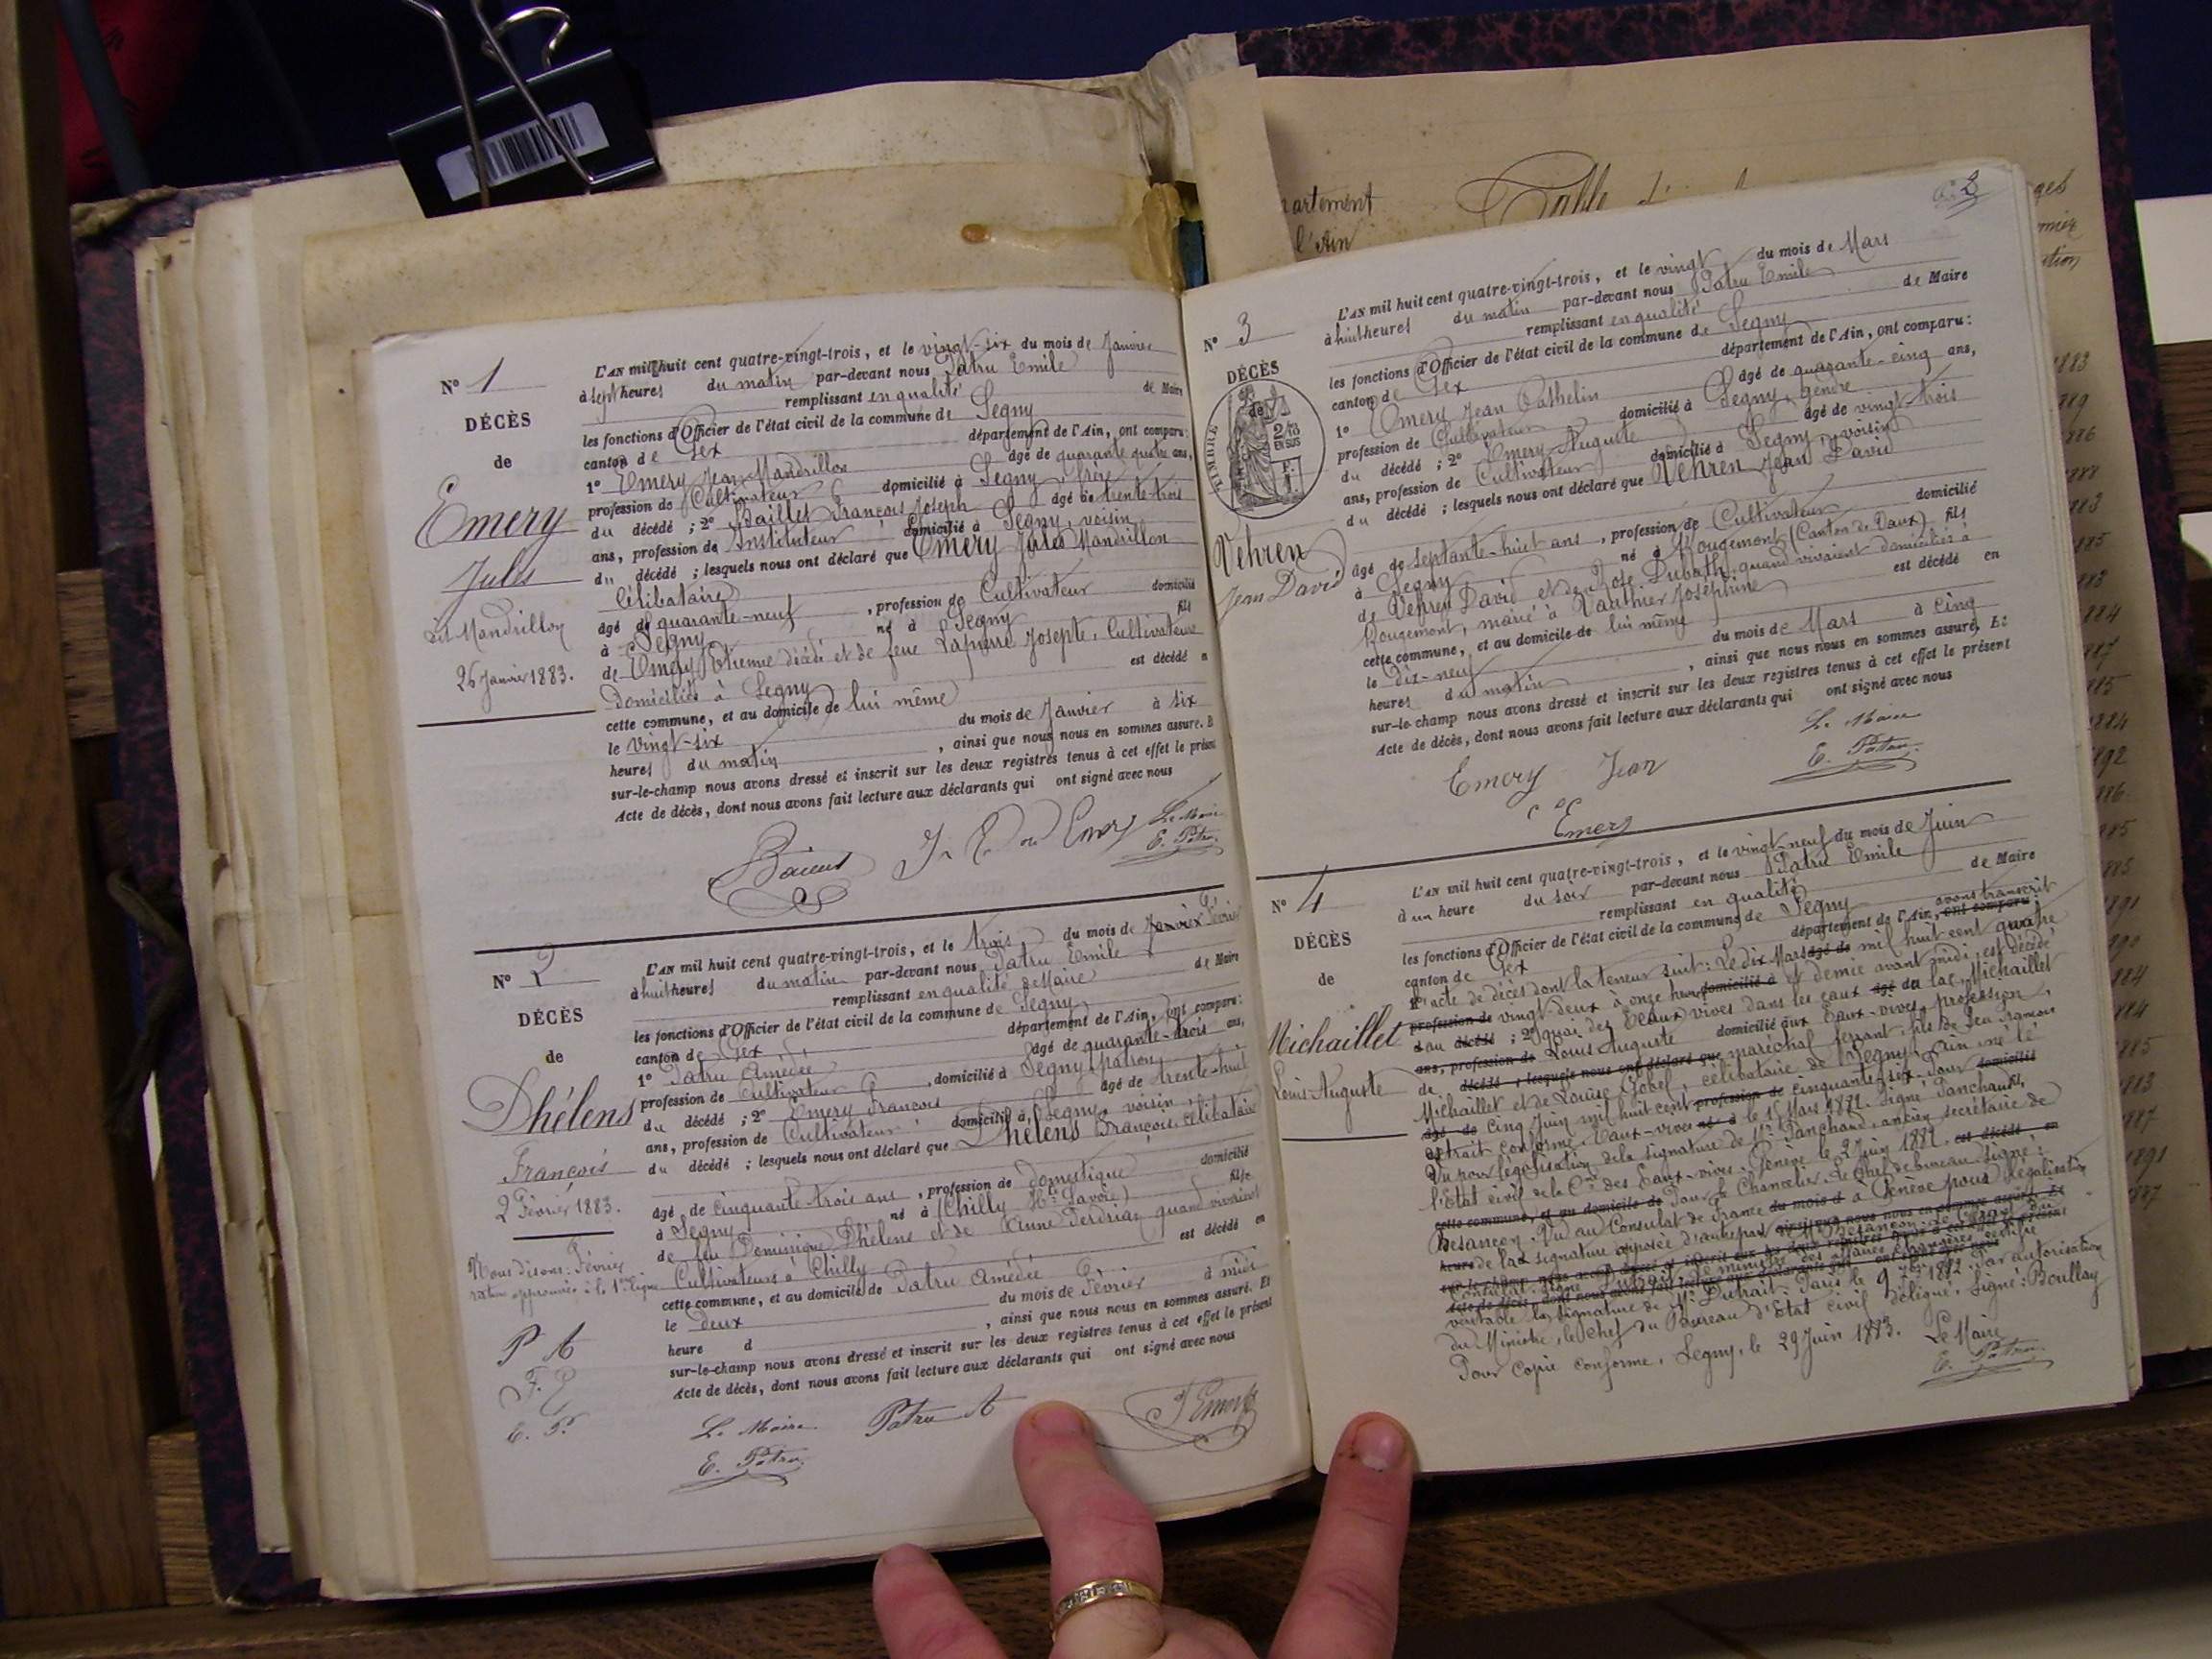 Nº 1
DÉCÈS
de
Emery
Jules
dit Mandrillon
26 Janvier 1883.
L'AN mil huit cent quatre-vingt-trois, et le vingt-six du mois de Janvier
à sept heures du matin par-devant nous Patru Emile
remplissant en qualité de Maire
les fonctions d'Officier de l'état civil de la commune de Segny
canton de Gex département de l'Ain, ont comparu:
1º Emery Jean Mandrillon âgé de quarante quatre ans,
profession de Cultivateur domicilié à Segny, frère
du décédé ; 2º François Joseph âgé de trente-trois
ans, profession de Instituteur domicilié à Segny, voisin
du décédé ; lesquels nous ont déclaré que Emery Jules Mandrillon
Célibataire
âgé de quarante-neuf , profession de Cultivateur domicilié
à Segny né à Segny fils
de Emery Etienne décédé et de feue Lapierre Josepte, Cultivateurs
domiciliés à Segny est décédé
cette commune, et au domicile de lui même
le vingt-six du mois de Janvier à six
heures du matin , ainsi que nous nous en sommes assuré. E
sur-le-champ nous avons dressé et inscrit sur les deux registres tenus à cet effet le présent
Acte de décès, dont nous avons fait lecture aux déclarants qui ont signé avec nous
Le Maire
E. Patru
Nº 2
DÉCÈS
de
Dhélens
François
2 Février 1883.
Nous disons : Février
approuvée à la 1ère ligne
P A
F. E
E. P.
L'AN mil huit cent quatre-vingt-trois, et le trois du mois de Janvier Février
à huit heures du matin par-devant nous Patru Emile
remplissant en qualité de Maire de Maire
les fonctions d'Officier de l'état civil de la commune de Segny
canton de Gex département de l'Ain, ont comparu:
1º Patru Amédée âgé de quarante-trois ans,
profession de Cultivateur , domicilié à Segny, patron
du décédé ; 2º Emery François âgé de trente-huit
ans, profession de Cultivateur domicilié à Segny, voisin
du décédé ; lesquels nous ont déclaré que Dhélens François, célibataire
âgé de cinquante-trois ans , profession de domestique domicilié
à Segny né à Chilly (Hte Savoie) fils
de feu Dominique Dhélens et de Anne Perdrias, quand vivaient
Cultivateurs à Chilly est décédé en
cette commune, et au domicile de Patru Amédée
le deux du mois de Février à midi
heure d , ainsi que nous nous en sommes assuré. Et
sur-le-champ nous avons dressé et inscrit sur les deux registres tenus à cet effet le présent
Acte de décès, dont nous avons fait lecture aux déclarants qui ont signé avec nous
Le Maire Patru A F Emery
E. Patru
artement
l'Ain
Table
Nº 3
DÉCÈS
de
TIMBRE
Vehren
Jean David
L'AN mil huit cent quatre-vingt-trois, et le vingt du mois de Mars
à huit heures du matin par-devant nous Patru Emile
remplissant en qualité de Maire
les fonctions d'Officier de l'état civil de la commune de Segny
canton de Gex département de l'Ain, ont comparu:
1º Emery Jean Cathelin âgé de quarante-cinq ans,
profession de Cultivateur domicilié à Segny, gendre
du décédé ; 2º Emery Auguste âgé de vingt-trois
ans, profession de Cultivateur domicilié à Segny, voisin
du décédé ; lesquels nous ont déclaré que Vehren Jean David
âgé de septante-huit ans , profession de Cultivateur domicilié
à Segny né à Rougemont (Canton de Vaux) fils
de Vehren David et de Rose Dubath, quand vivaient domiciliés à
Rougemont, marié à Vauthier Joséphine est décédé en
cette commune, et au domicile de lui même
le dix-neuf du mois de Mars à cinq
heures du matin , ainsi que nous nous en sommes assuré. Et
sur-le-champ nous avons dressé et inscrit sur les deux registres tenus à cet effet le présent
Acte de décès, dont nous avons fait lecture aux déclarants qui ont signé avec nous
Le Maire
Emery Jean E. Patru
Emery
Nº 4
DÉCÈS
de
Michaillet
Louis Auguste
L'AN mil huit cent quatre-vingt-trois, et le vingt-neuf du mois de Juin
à un heure du soir par-devant nous Patru Emile
remplissant en qualité de Maire
les fonctions d'Officier de l'état civil de la commune de Segny avons transcrit
canton de Gex département de l'Ain, ont comparu:
acte de décès dont la teneur suit : Le dix Mars mil huit cent quatre
vingt-deux à onze heures et demie avant midi, est décédé
au quai des Eaux vives dans les eaux du lac, Michaillet
Louis Auguste domicilié aux Eaux-vives, profession
de maréchal ferrant, fils de feu François
Michaillet et de Louise Gobel, célibataire de Segny, Ain, né le
cinq Juin mil huit cent cinquante-six. Pour
extrait conforme, Eaux-vives le 15 Mars 1882. Signé Panchaud.
Vu pour légalisation de la signature de Mr Panchaud, ancien secrétaire de
l'Etat civil de la Cne des Eaux-vives. Genève le 2 Juin 1882.
Pour le Chancelier. Le Chef de bureau signé :
Besançon. Vu au Consulat de France à Genève pour légalisation
de la signature apposée d'autre part
véritable la signature de Mr Dutrait. Paris le 9 7bre 1882. Par autorisation
du Ministre, le Chef du Bureau d'Etat Civil délégué, Signé : Boullay
Pour copie conforme, Segny, le 29 Juin 1883. Le Maire
E. Patru